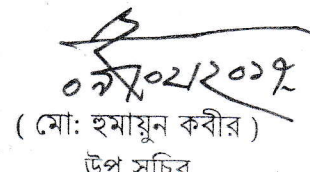 ০৯/০২/২০১৭
( মো: হুমায়ুন কবীর )
উপ সচিব